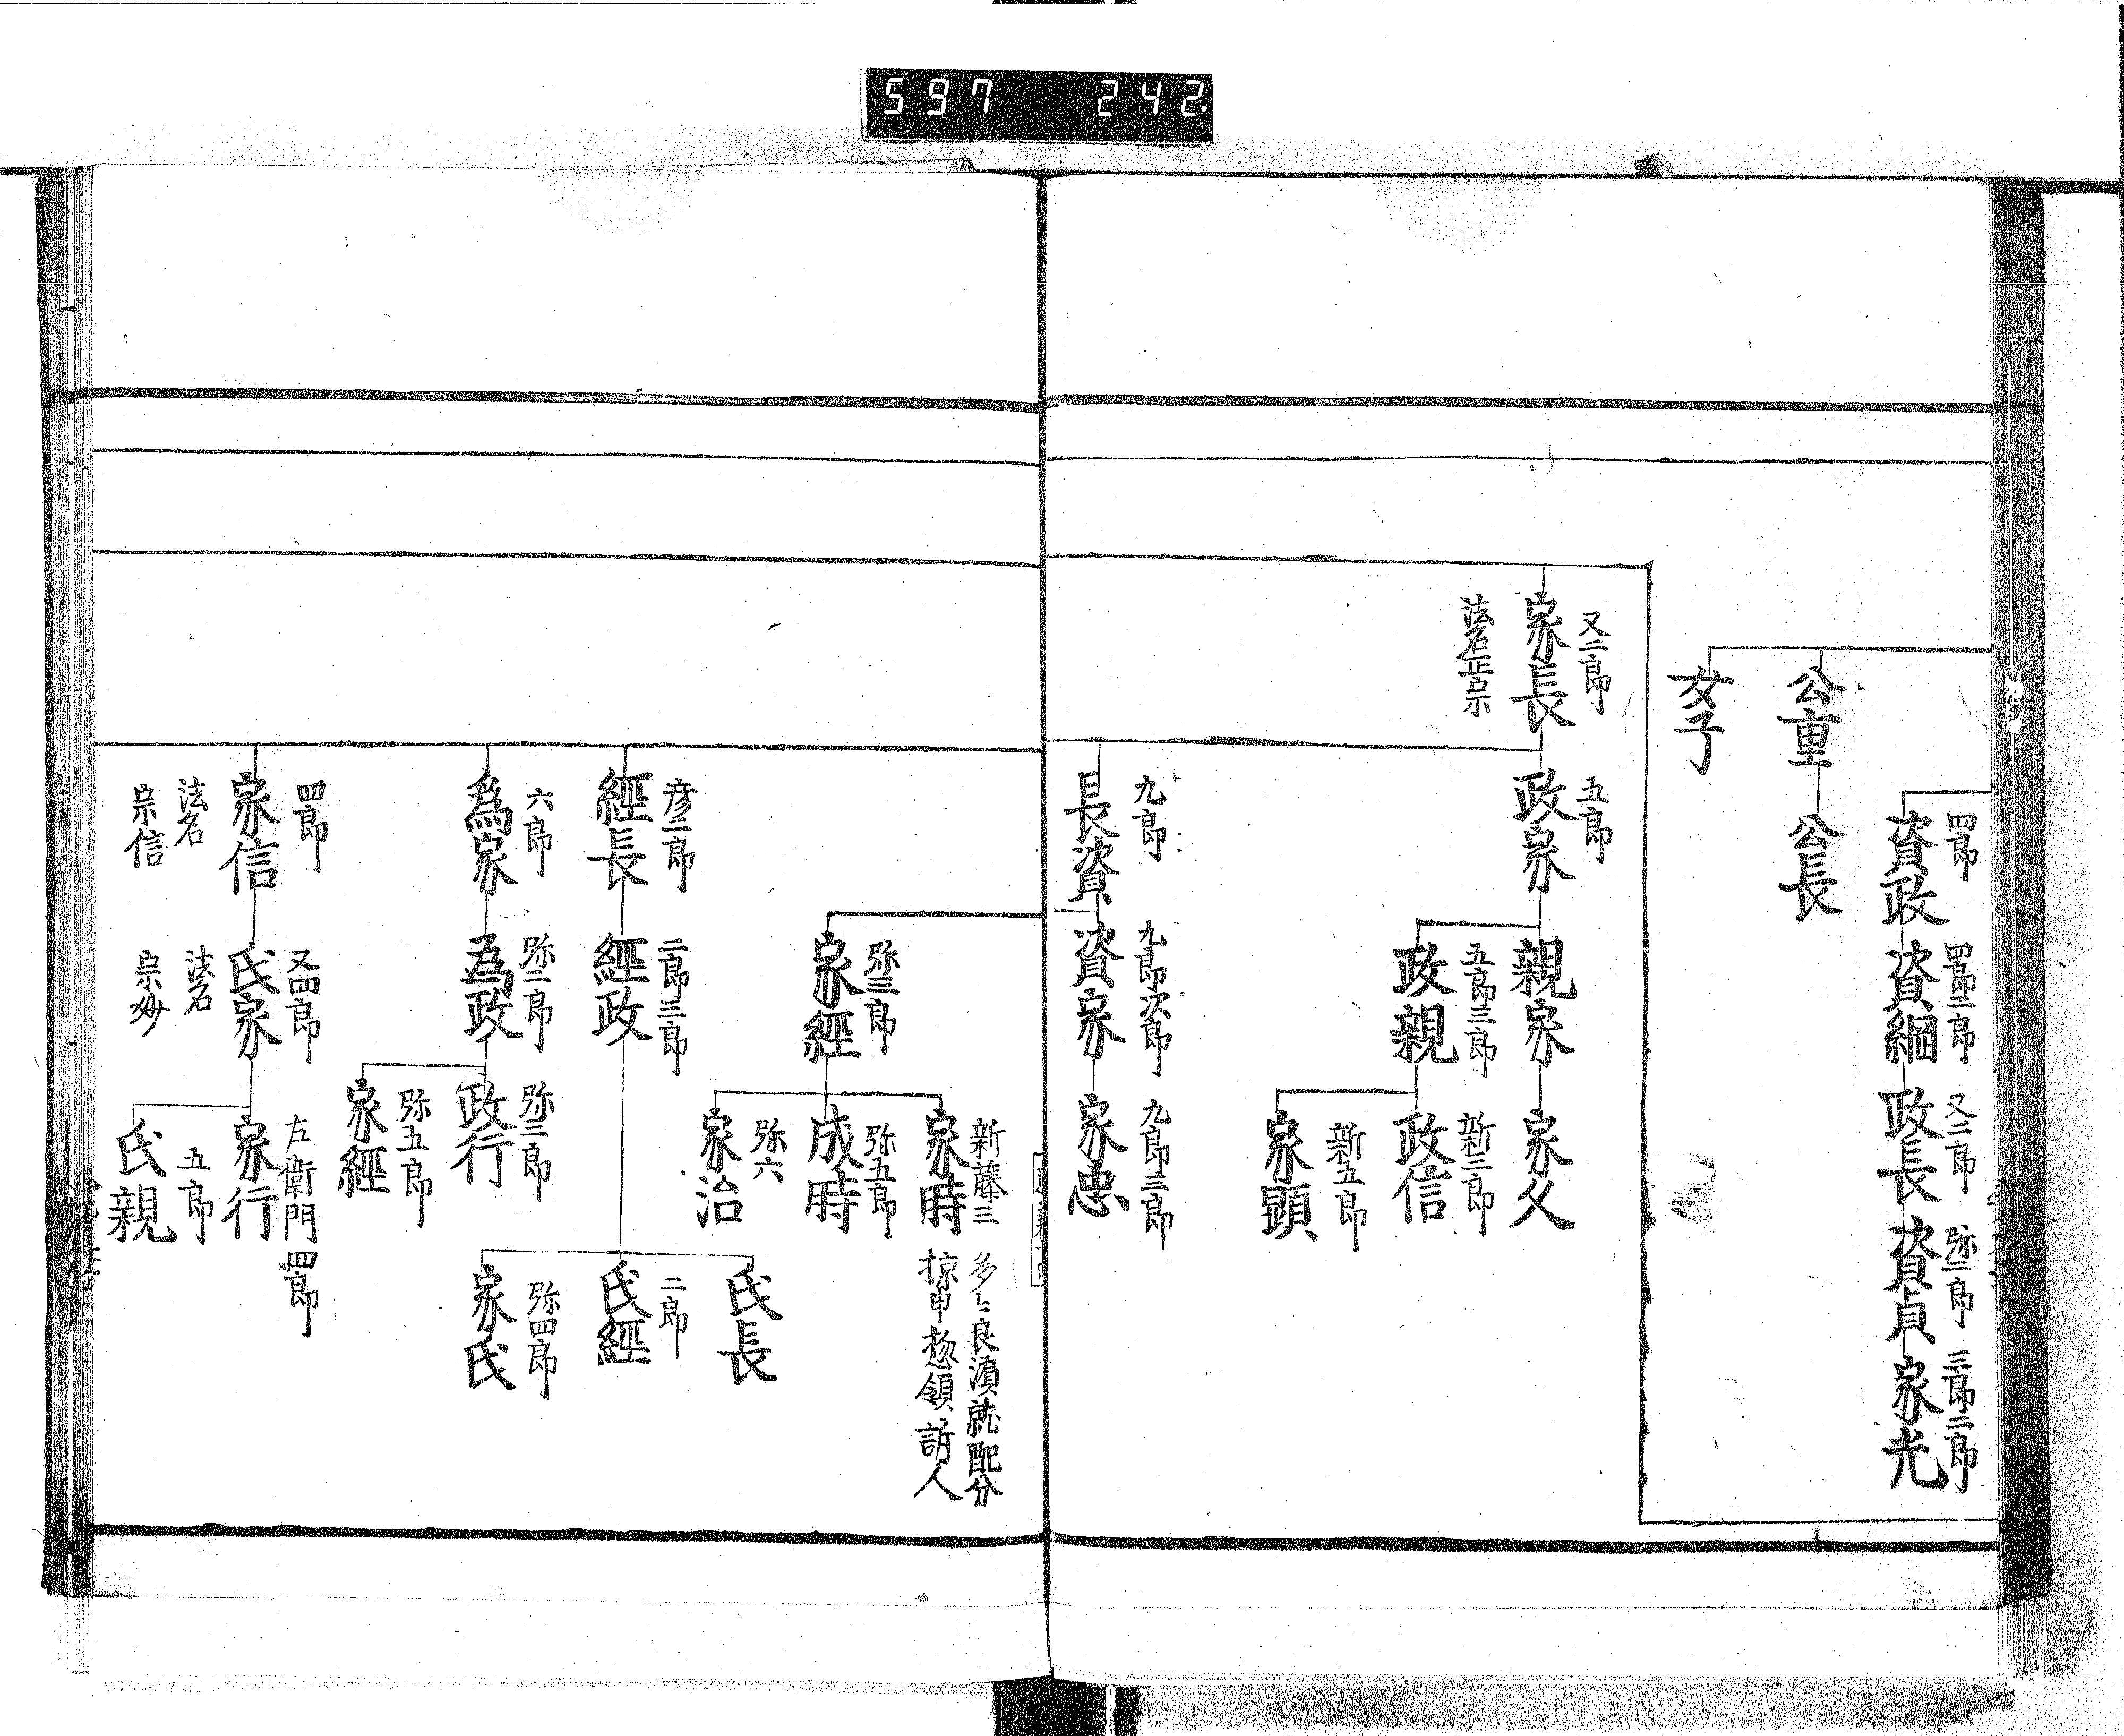 597 242
四郎
資政
四郎二郎
資綱
又二郎
政長
弥二郎
資貞
三郎二郎
家光
公重
公長
女子
又二郎
家長
法名正宗
五郎
政家
親家
家久
五郎三郎
政親
新三郎
政信
新五郎
家顕
九郎
長資
九郎次郎
資家
九郎三郎
家忠
弥三郎
家經
新藤三
家時
多々良濱就配分
掠申惣領訴人
弥五郎
成時
弥六
家治
彦二郎
經長
二郎三郎
經政
氏長
二郎
氏經
弥四郎
家氏
六郎
為家
弥二郎
為政
弥三郎
政行
弥五郎
家經
四郎
家信
法名
宗信
又四郎
氏家
法名
宗妙
左衛門四郎
家行
五郎
氏親